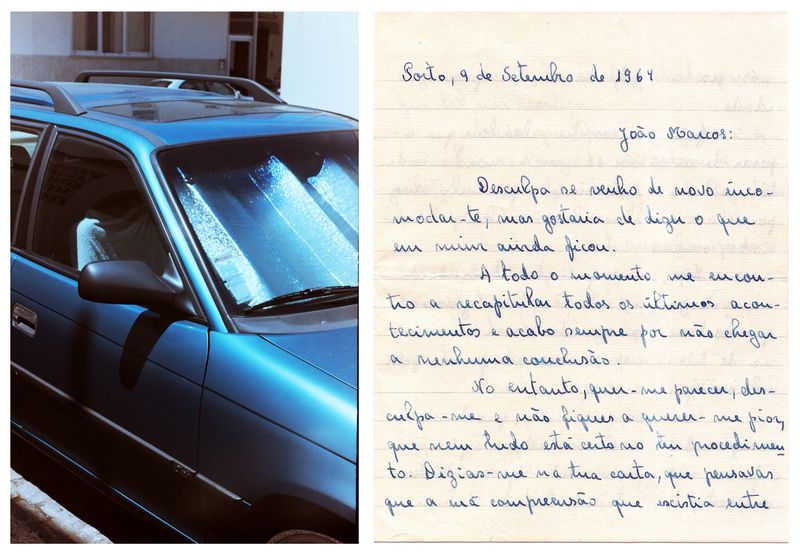 Porto, 9 de Setembro de 1964
João Marcos:
Desculpa se venho de novo inco-
modar-te, mas gostaria de dizer o que
em mim ainda ficou.
A todo o momento me encon-
tro a recapitular todos os últimos acon-
tecimentos e acabo sempre por não chegar
a nenhuma conclusão.
No entanto, quer-me parecer, des-
culpa-me e não fiques a querer-me pior,
que nem tudo está certo no teu procedimen-
to. Dizias-me na tua carta, que pensavas
que a má compreensão que existia entre